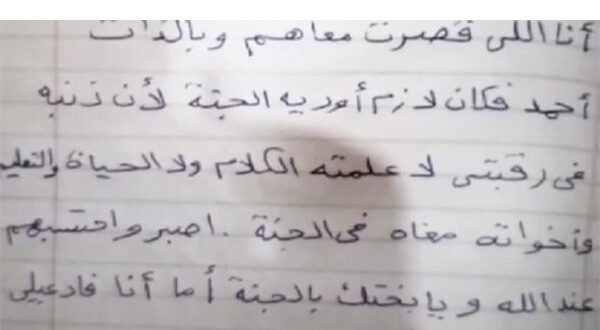 أنا اللى قصرت معاهم وبالذات
أحمد فكان لازم أوديه الجنة لأن ذنبه
فى رقبتى لا علمته الكلام ولا الحياة والتعليم
وأخواته معاه فى الجنة . اصبر واحتسبهم
عند الله ويابختك بالجنة أما أنا فادعيلى